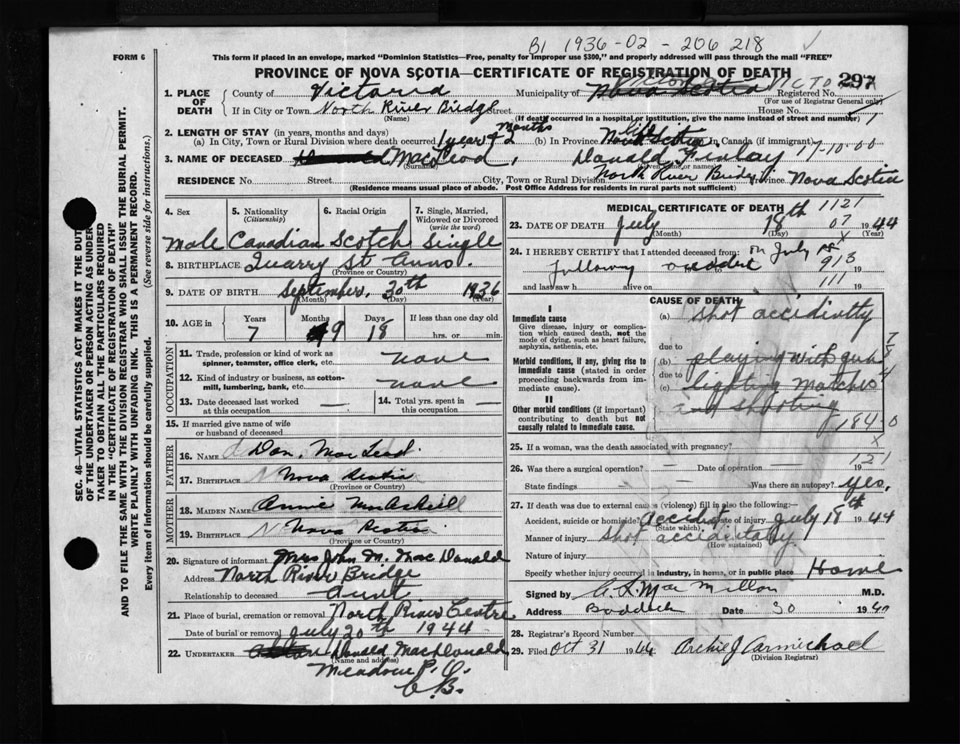 B1 1936-02-206218
FORM 6
This form if placed in an envelope, marked "Dominion Statistics—Free, penalty for improper use $300," and properly addressed will pass through the mail "FREE"
PROVINCE OF NOVA SCOTIA—CERTIFICATE OF REGISTRATION OF DEATH
297
1. PLACE OF DEATH
County of Victoria Municipality of Nova Scotia Registered No.
(For use of Registrar General only)
If in City or Town North River Bridge Street House No.
(Name) (If death occurred in a hospital or institution, give the name instead of street and number)
2. LENGTH OF STAY (in years, months and days)
(a) In City, Town or Rural Division where death occurred 1 year & 2 months (b) In Province Life (c) In Canada (if immigrant)
3. NAME OF DECEASED MacLeod, Donald Finlay 17-10-00
(Surname)
RESIDENCE No. Street City, Town or Rural Division North River Bridge Province Nova Scotia
(Residence means usual place of abode. Post Office Address for residents in rural parts not sufficient)
4. Sex
5. Nationality
(Citizenship)
6. Racial Origin
7. Single, Married, Widowed or Divorced
(write the word)
Male Canadian Scotch Single
8. BIRTHPLACE Quarry St Anns.
(Province or Country)
9. DATE OF BIRTH September, 30th 1936
(Month) (Day) (Year)
10. AGE in Years Months Days If less than one day old
7 9 18 hrs. or min.
OCCUPATION
11. Trade, profession or kind of work as spinner, teamster, office clerk, etc. none
12. Kind of industry or business, as cotton-mill, lumbering, bank, etc. none
13. Date deceased last worked at this occupation —
14. Total yrs. spent in this occupation —
15. If married give name of wife or husband of deceased
FATHER
16. NAME Dan. MacLeod
17. BIRTHPLACE Nova Scotia
(Province or Country)
MOTHER
18. MAIDEN NAME Annie McAskill
19. BIRTHPLACE Nova Scotia
(Province or Country)
20. Signature of informant Mrs John M. MacDonald
Address North River Bridge
Relationship to deceased Aunt
21. Place of burial, cremation or removal North River Centre
Date of burial or removal July 20th 1944
22. UNDERTAKER Donald MacDonald,
(Name and address)
Meadow P.O.
C.B.
MEDICAL CERTIFICATE OF DEATH
1121
23. DATE OF DEATH July 18th 07 1944
(Month) (Day) (Year)
24. I HEREBY CERTIFY that I attended deceased from on July 18
following accident 913 19
and last saw h alive on 111 19
CAUSE OF DEATH
I
Immediate cause
Give disease, injury or complication which caused death, not the mode of dying, such as heart failure, asphyxia, asthenia, etc.
(a) Shot accidintly
due to
Morbid conditions, if any, giving rise to immediate cause (stated in order proceeding backwards from immediate cause).
(b) playing with gun
due to
(c) lighting matches
and shooting
II
Other morbid conditions (if important) contributing to death but not causally related to immediate cause.
184.0
25. If a woman, was the death associated with pregnancy?
26. Was there a surgical operation? — Date of operation — 19
121
State findings — Was there an autopsy? yes.
27. If death was due to external causes (violence) fill in also the following:—
Accident, suicide or homicide Accident Date of injury July 18th 1944
(State which)
Manner of injury shot accidintaly
(How sustained)
Nature of injury
Specify whether injury occurred in industry, in home, or in public place Home
Signed by C. L. MacMillan M.D.
Address Baddeck Date 30 19
28. Registrar's Record Number
29. Filed Oct 31 1944 Archie J Carmichael
(Division Registrar)
SEC. 46—VITAL STATISTICS ACT MAKES IT THE DUTY
OF THE UNDERTAKER OR PERSON ACTING AS UNDERTAKER TO OBTAIN ALL THE PARTICULARS REQUIRED
IN THE "CERTIFICATE OF REGISTRATION OF DEATH"
AND TO FILE THE SAME WITH THE DIVISION REGISTRAR WHO SHALL ISSUE THE BURIAL PERMIT.
WRITE PLAINLY WITH UNFADING INK. THIS IS A PERMANENT RECORD.
Every item of information should be carefully supplied. (See reverse side for instructions.)